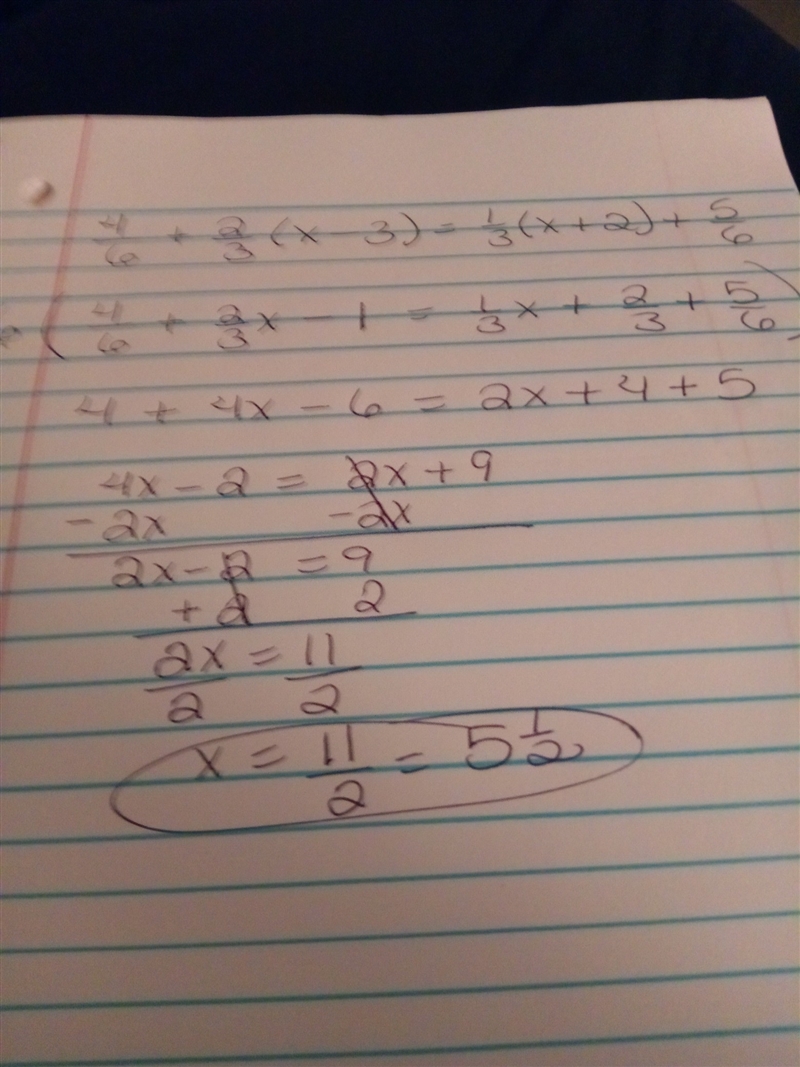 4/6 + 2/3 (x - 3) = 1/3 (x + 2) + 5/6
( 4/6 + 2/3 x - 1 = 1/3 x + 2/3 + 5/6 )
4 + 4x - 6 = 2x + 4 + 5
4x - 2 = 2x + 9
- 2x - 2x
2x - 2 = 9
+ 2 2
2x/2 = 11/2
x = 11/2 = 5 1/2